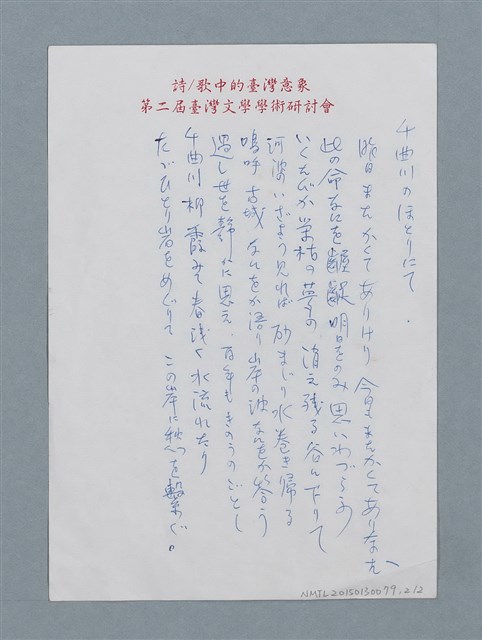 詩/歌中的臺灣意象
第二屆臺灣文學學術研討會
千曲川のほとりにて.
昨日またかくてありけり 今日もまたかくてありなむ、
此の命なにを齷齪明日をのみ思いわづらふ
いくたびか栄枯の夢の 消え残る谷に下りて
河波のいざよう見れば 砂まじり水巻き帰る
嗚呼古城なにをか語り岸の波なにをか答う
過し世を静かに思え、百年もきのうのごとし
千曲川柳霞みて春浅く水流れたり
たゞひとり岩をめぐりて この岸に愁を繋ぐ。
NMTL20150130079, 2/2